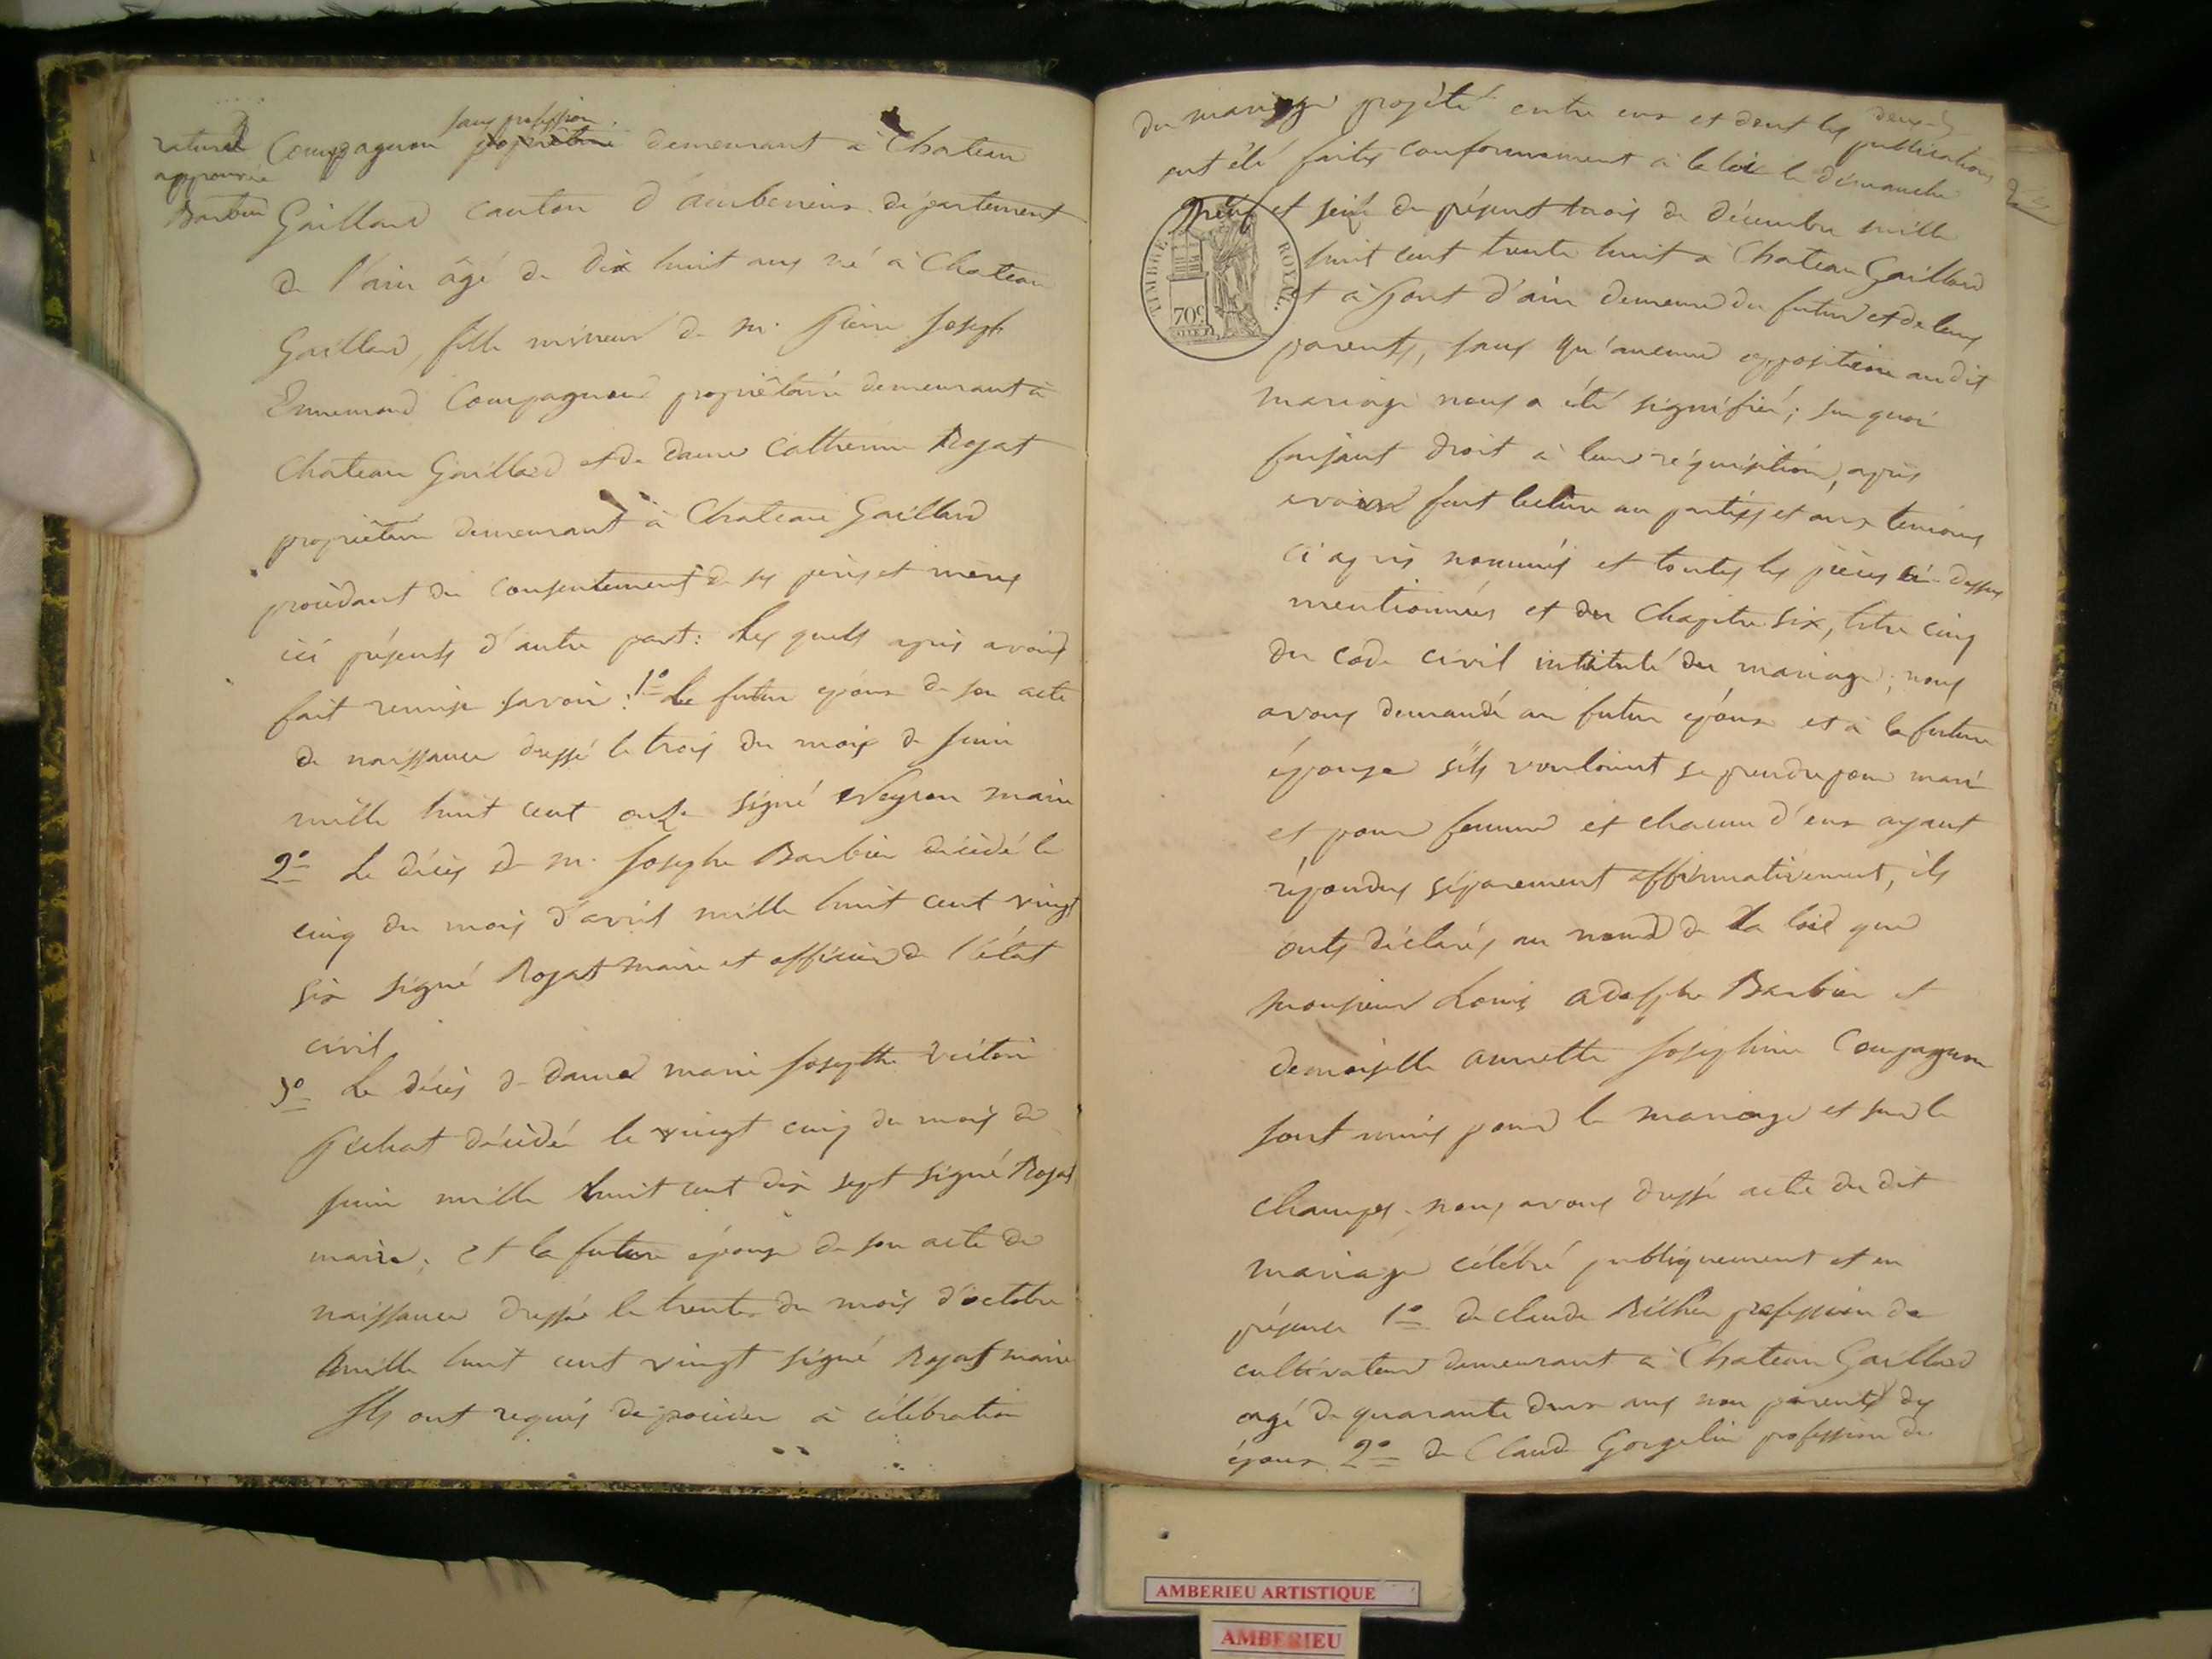 sans profession
rature Compagnon propriétaire demeurant à Chateau
approuvée
Barbier Gaillard canton d'amberieux département
de l'ain âgé de dix huit ans né à Chateau
Gaillard, fille mineur de m. Pierre Joseph
Ennemond Compagnon propriêtaire demeurant à
Chateau Gaillard et de dame Catherine Rojat
propriêtaire demeurant à Chateau Gaillard
procédant du consentement de ses pères et mères
ici présents d'autre part: Les quels après avoir
fait remise savoir: 1º Le futur époux de son acte
de naissance dressé le trois du mois de juin
mille huit cent onze signé maire
2º Le décès de m. Josephe Barbier décédé le
cinq du mois d'avril mille huit cent vingt
six signé Rojat maire et officier de l'état
civil
3º Le décès de dame marie Josephte
décédé le vingt cinq du mois de
juin mille huit cent dix sept signé Rojat
maire; et la future épouse de son acte de
naissance dressé le trente du mois d'octobre
mille huit cent vingt signé Rojat maire
Ils ont requis de procéder à célébration
du mariage projété entre eux et dont les deux publications
ont été faites conformement à la loi le dimanche
et seize du présent mois de décembre mille
huit cent trente huit à Chateau Gaillard
et à Pont d'ain demeure du futur et de leurs
parents, sans qu'aucune opposition audit
mariage nous a été signifié; sur quoi
faisant droit à leur réquisition, après
avoir fait lecture au parties et aux temoins
ci après nommés et toutes les pièces ci-dessus
mentionnées et du Chapitre six, titre cinq
du code civil intitulé du mariage, nous
avons demandé au futur époux et à la future
épouse s'ils vouloient se prendre pour mari
et pour femme et chacun d'eux ayant
répondus séparement affirmativement, ils
onts déclarés au nom de la loi que
monsieur Louis adolphe Barbier et
demoiselle annette Joséphine Compagnon
sont unis pour le mariage et sur le
champs nous avons dressé acte du dit
mariage célébré publiquement et en
présence 1º de claude profession de
cultivateur demeurant à Chateau Gaillard
agé de quarante deux ans non parents des
époux 2º de Claude Gorgelin profession de
TIMBRE ROYAL.
70c
AMBERIEU ARTISTIQUE
AMBERIEU